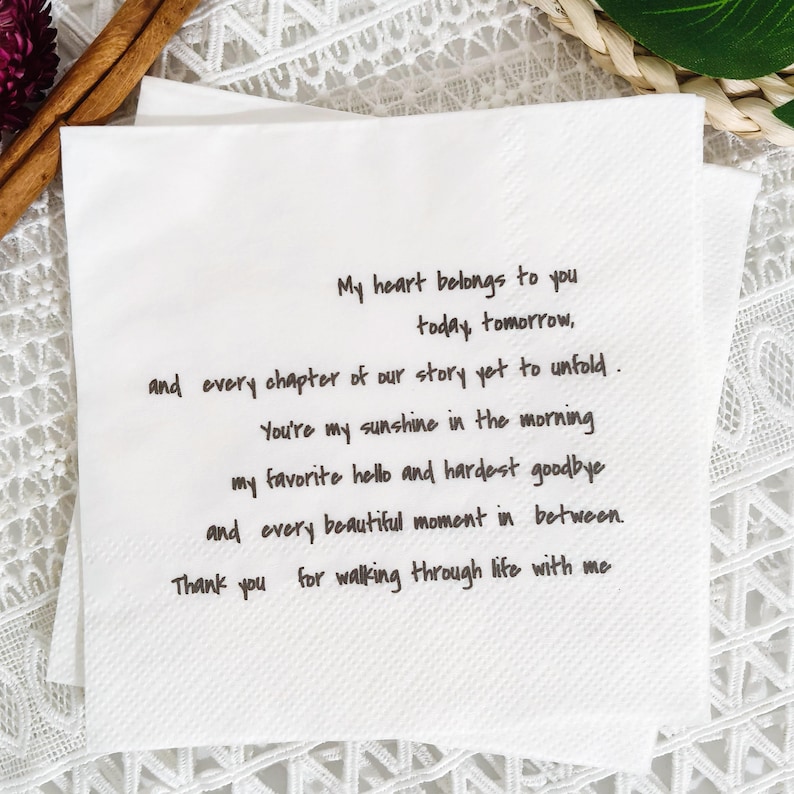 My heart belongs to you
today, tomorrow,
and every chapter of our story yet to unfold.
You're my sunshine in the morning
my favorite hello and hardest goodbye
and every beautiful moment in between.
Thank you for walking through life with me